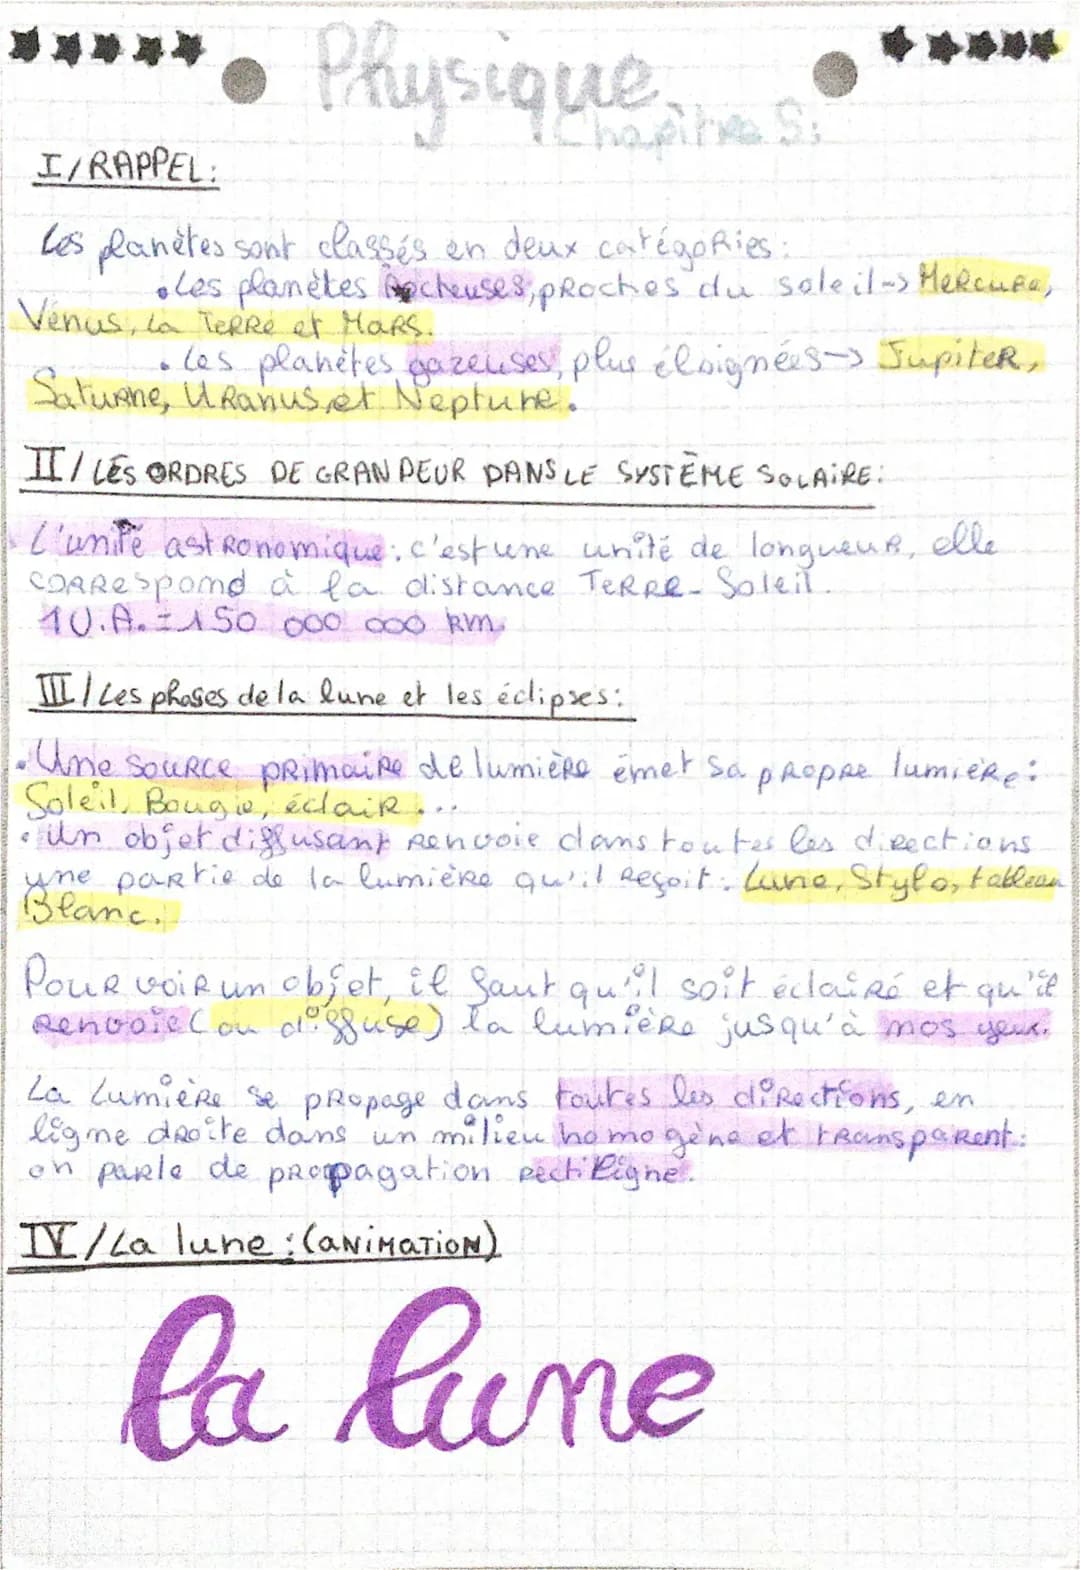 Physique
Chapitre 5:
I/RAPPEL:
Les planètes sont classés en deux catégories:
• Les planètes Rocheuses, proches du soleil -> Mercure,
Vénus, La Terre et Mars.
• Les planètes gazeuses, plus éloignées -> Jupiter,
Saturne, Uranus, et Neptune.
II/ LES ORDRES DE GRANDEUR DANS LE SYSTÈME SOLAIRE:
L'unité astronomique: c'est une unité de longueur, elle
correspond à la distance Terre-Soleil.
1U.A. = 150 000 000 km.
III/ Les phases de la lune et les éclipses:
• Une source primaire de lumière émet sa propre lumière:
Soleil, Bougie, éclair...
• Un objet diffusant renvoie dans toutes les directions
une partie de la lumière qu'il reçoit: Lune, Stylo, tableau
Blanc.
Pour voir un objet, il faut qu'il soit éclairé et qu'il
renvoie (ou diffuse) la lumière jusqu'à nos yeux.
La Lumière se propage dans toutes les directions, en
ligne droite dans un milieu homogène et transparent:
on parle de propagation rectiligne.
IV/La lune: (ANIMATION)
la lune